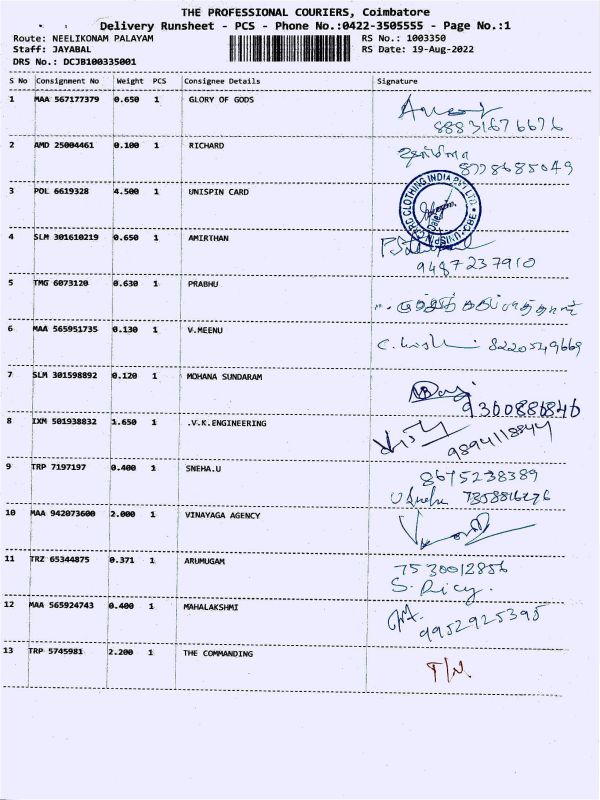 THE PROFESSIONAL COURIERS, Coimbatore
Delivery Runsheet - PCS - Phone No.:0422-3505555 - Page No.:1
Route: NEELIKONAM PALAYAM
Staff: JAYABAL
DRS No.: DCJB100335001
RS No.: 1003350
RS Date: 19-Aug-2022
S No Consignment No Weight PCS Consignee Details Signature
1 MAA 567177379 0.650 1 GLORY OF GODS
88831676676
2 AMD 25004461 0.100 1 RICHARD
8778685049
3 POL 6619328 4.500 1 UNISPIN CARD
4 SLM 301610219 0.650 1 AMIRTHAN
9487237910
5 TMG 6073120 0.630 1 PRABHU
6 MAA 565951735 0.130 1 V.MEENU
8220549669
7 SLM 301598892 0.120 1 MOHANA SUNDARAM
9360886846
8 IXM 501938832 1.650 1 .V.K.ENGINEERING
9894118844
9 TRP 7197197 0.400 1 SNEHA.U
8675238389
U Sneha 7358816276
10 MAA 942073600 2.000 1 VINAYAGA AGENCY
11 TRZ 65344875 0.371 1 ARUMUGAM
7530012856
S. Ricy.
12 MAA 565924743 0.400 1 MAHALAKSHMI
9952925395
13 TRP 5745981 2.200 1 THE COMMANDING